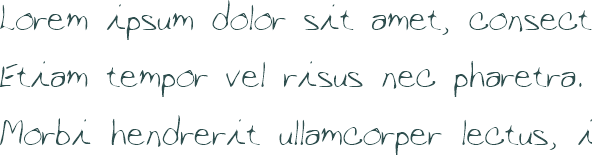 Lorem ipsum dolor sit amet, consect
Etiam tempor vel risus nec pharetra.
Morbi hendrerit ullamcorper lectus, i